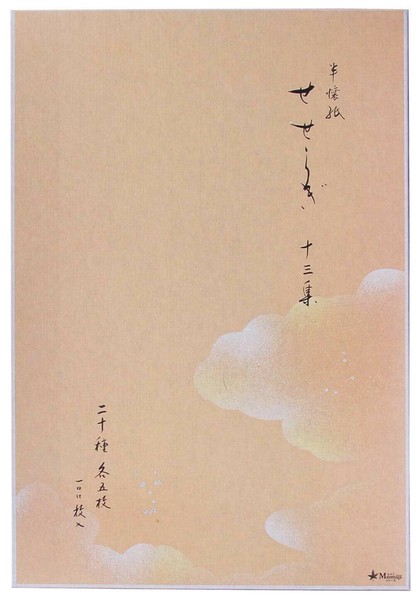 半懐紙
せせらぎ 十三集
二十種 各五枚
一〇〇枚入
Momiji